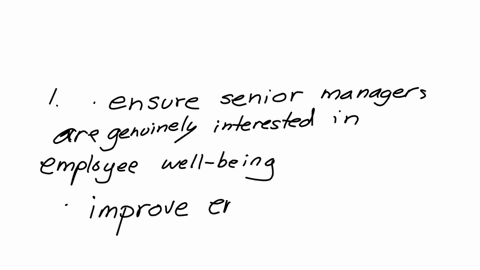 1. · ensure senior managers
are genuinely interested in
employee well-being
· improve er